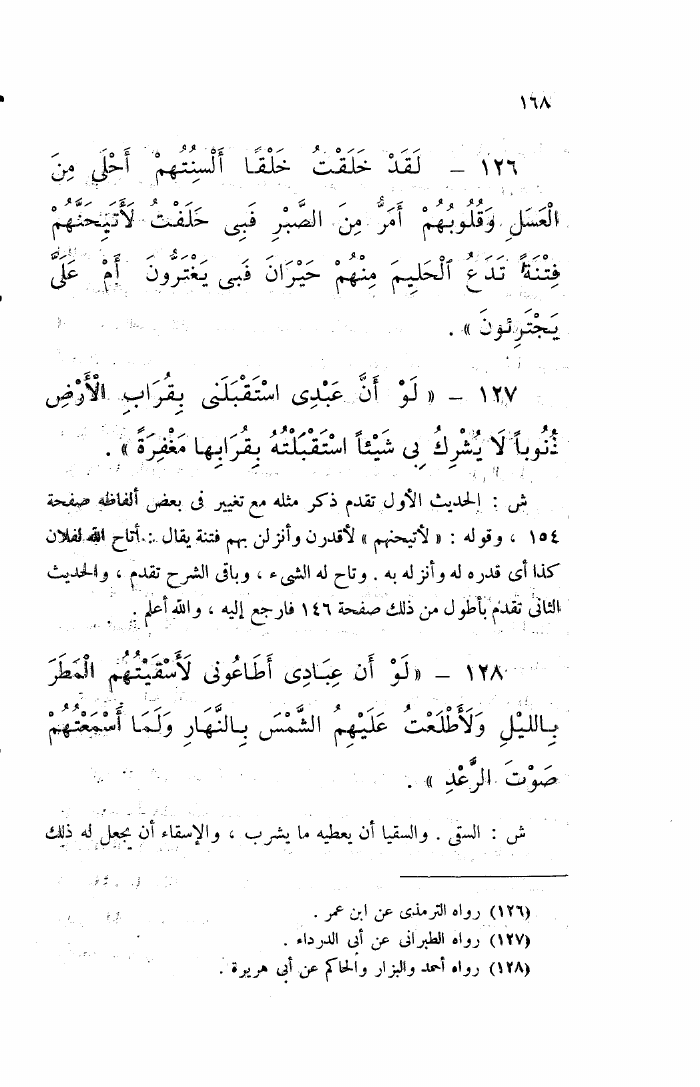 ١٦٨
١٢٦ – لَقَدْ خَلَقْتُ خَلْقًا أَلْسِنَتُهُمْ أَحْلَى مِنَ
الْعَسَلِ وَقُلُوبُهُمْ أَمَرُّ مِنَ الصَّبْرِ فَبِى حَلَفْتُ لَأُتِيحَنَّهُمْ
فِتْنَةً تَدَعُ الْحَلِيمَ مِنْهُمْ حَيْرَانَ فَبِى يَغْتَرُّونَ أَمْ عَلَىَّ
يَجْتَرِئُونَ » .
١٢٧ – « لَوْ أَنَّ عَبْدِى اسْتَقْبَلَنِى بِقُرَابِ الْأَرْضِ
ذُنُوباً لَا يُشْرِكُ بِى شَيْئاً اسْتَقْبَلْتُهُ بِقُرَابِها مَغْفِرَةً » .
ش : الحديث الأول تقدم ذكر مثله مع تغيير فى بعض ألفاظه صفحة
١٥٤ ، وقوله : « لأتيحنهم » لأقدرن وأنزلن بهم فتنة يقال : أتاح الله لفلان
كذا أى قدره له وأنزله به . وتاح له الشىء ، وباقى الشرح تقدم ، والحديث
الثانى تقدم بأطول من ذلك صفحة ١٤٦ فارجع إليه ، والله أعلم .
١٢٨ – « لَوْ أَن عِبَادِى أَطَاعُونِى لَأَسْقَيْتُهُم الْمَطَرَ
بِاللَّيْلِ وَلَأَطْلَعْتُ عَلَيْهِمُ الشَّمْسَ بِالنَّهَارِ وَلَمَا أَسْمَعْتُهُمْ
صَوْتَ الرَّعْدِ » .
ش : السقى . والسقيا أن يعطيه ما يشرب ، والإسقاء أن يجعل له ذلك
(١٢٦) رواه الترمذى عن ابن عمر .
(١٢٧) رواه الطبرانى عن أبى الدرداء .
(١٢٨) رواه أحمد والبزار والحاكم عن أبى هريرة .